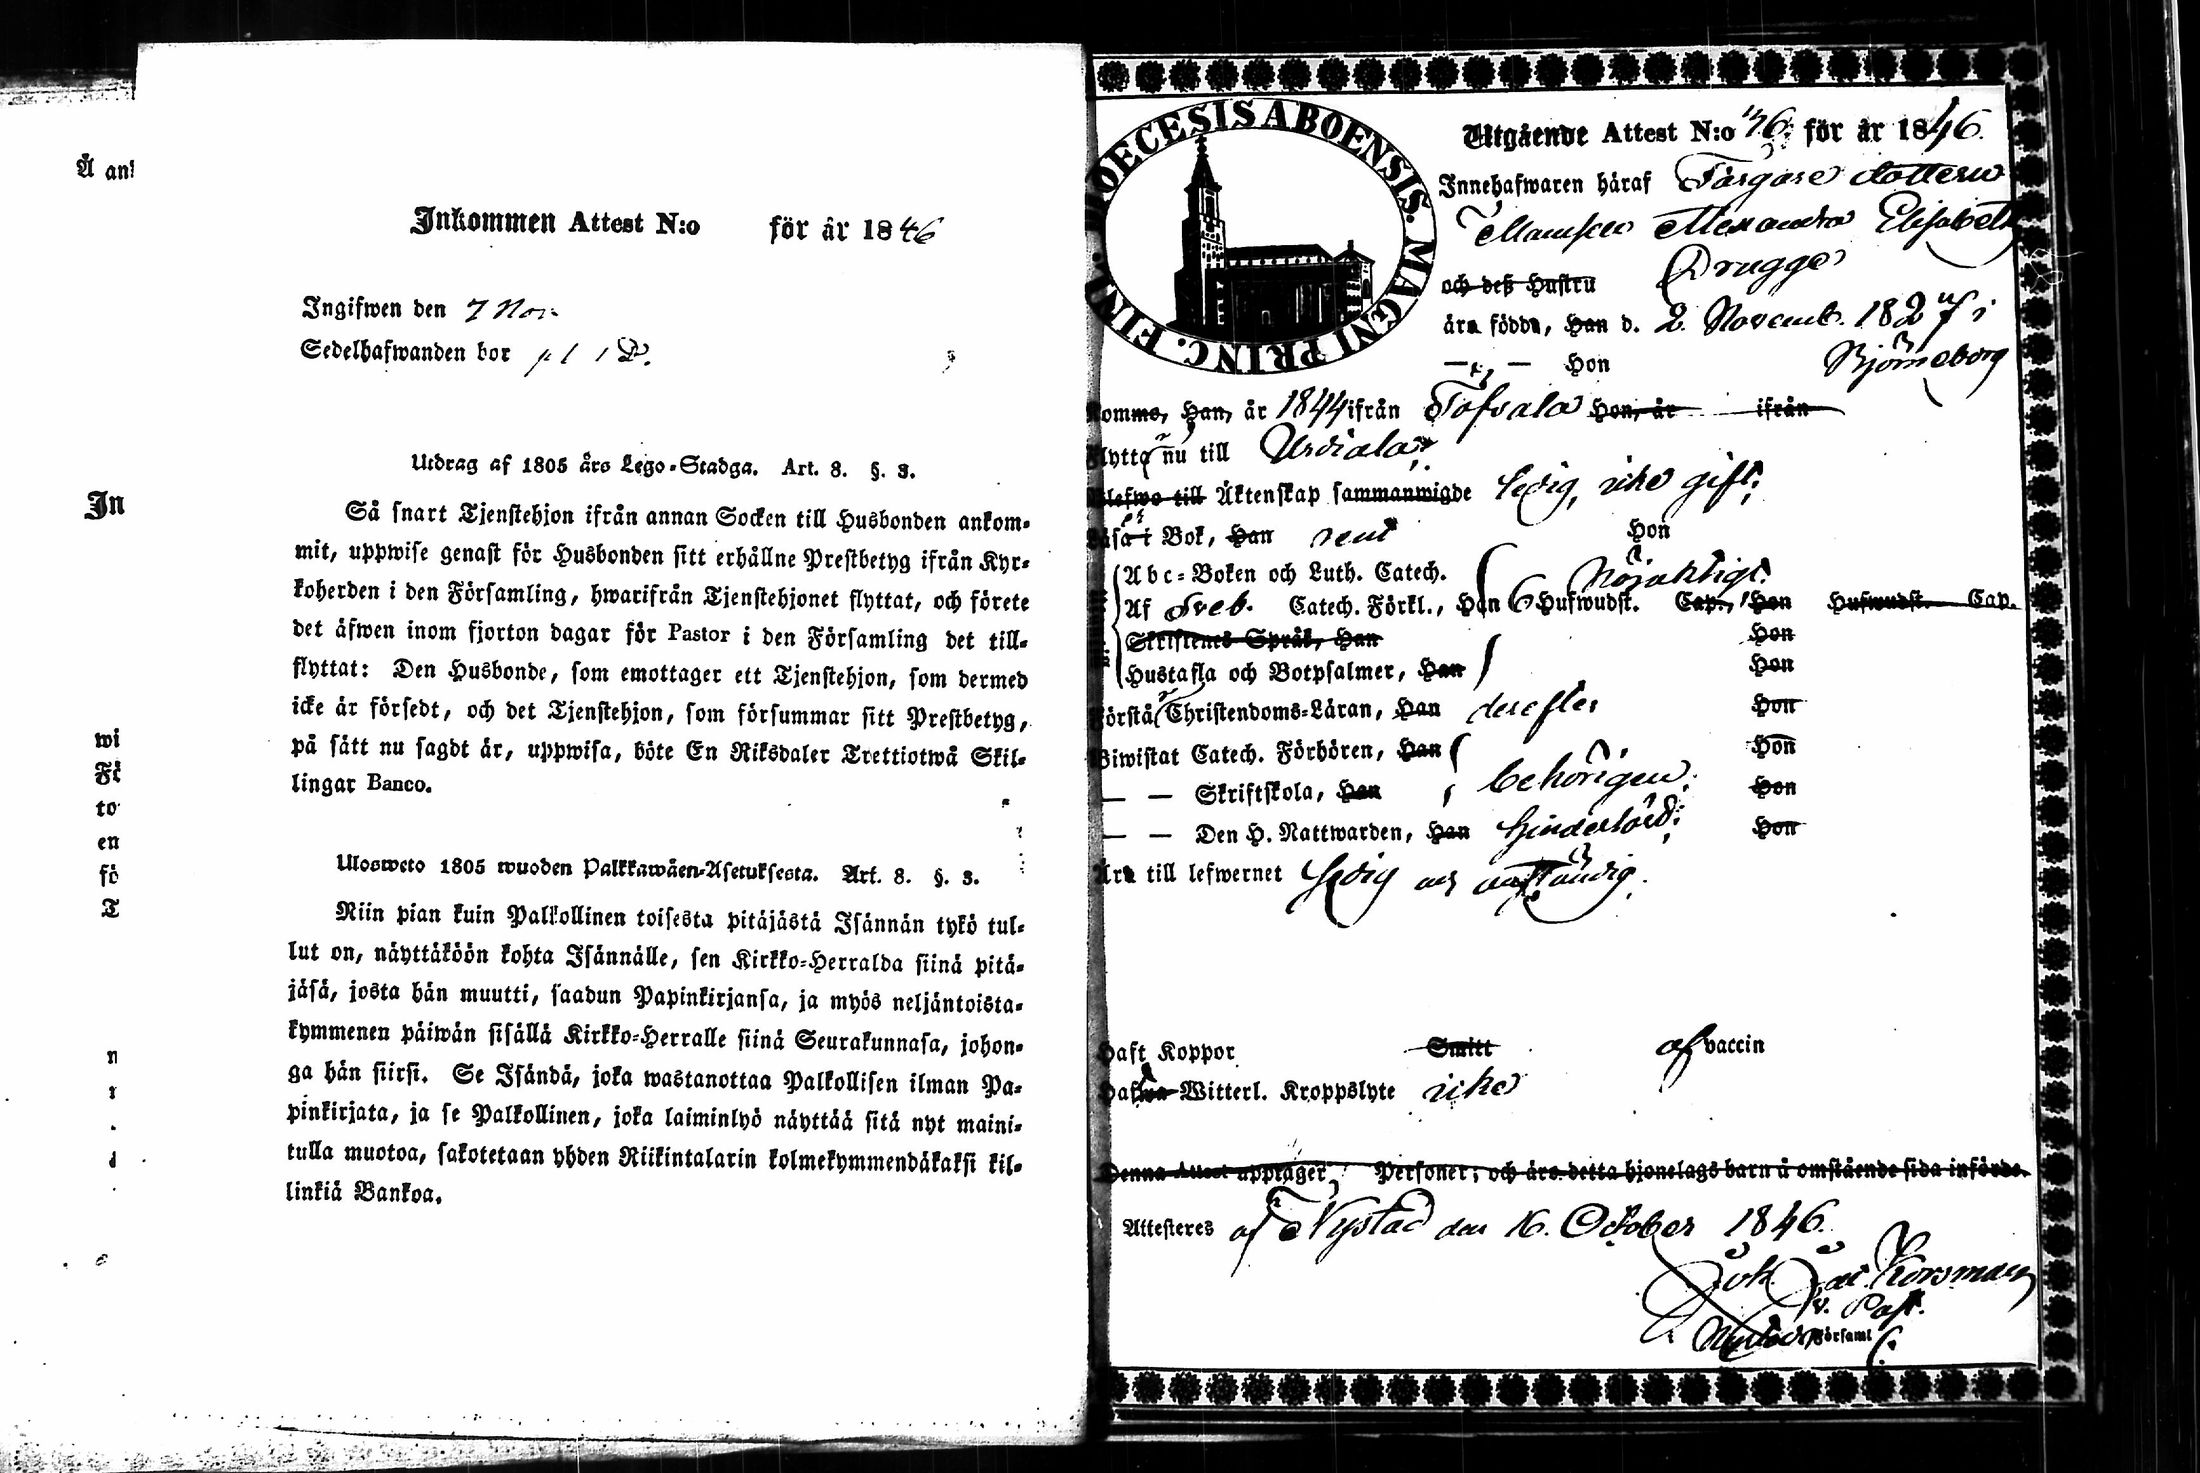 Å ank
In
wi
Fö
to
en
fö
T
Inkommen Attest N:o för år 1846
Ingifwen den 7 Nov.
Sedelhafwanden bor
Utdrag af 1805 års Lego-Stadga. Art. 8. §. 3.
Så snart Tjenstehjon ifrån annan Socken till Husbonden ankom-
mit, uppwise genast för Husbonden sitt erhållne Prestbetyg ifrån Kyr-
koherden i den Församling, hwarifrån Tjenstehjonet flyttat, och förete
det äfwen inom fjorton dagar för Pastor i den Församling det till-
flyttat: Den Husbonde, som emottager ett Tjenstehjon, som dermed
icke är försedt, och det Tjenstehjon, som försummar sitt Prestbetyg,
på sätt nu sagdt är, uppwisa, böte En Riksdaler Trettiotwå Skil-
lingar Banco.
Ulosweto 1805 wuoden Palkkawäen-Asetuksesta. Art. 8. §. 3.
Niin pian kuin Palkollinen toisesta pitäjästä Isännän tykö tul-
lut on, näyttäköön kohta Isännälle, sen Kirkko-Herralda siinä pitä-
jäsä, josta hän muutti, saadun Papinkirjansa, ja myös neljäntoista-
kymmenen päiwän sisällä Kirkko-Herralle siinä Seurakunnasa, johon-
ga hän siirsi. Se Isändä, joka wastanottaa Palkollisen ilman Pa-
pinkirjata, ja se Palkollinen, joka laiminlyö näyttää sitä nyt maini-
tulla muotoa, sakotetaan yhden Riikintalarin kolmekymmendäkaksi kil-
linkiä Bankoa.
DIOECESIS ABOENSIS. MAGNI PRINC. FINL.
Utgående Attest N:o 76 för år 1846.
Innehafwaren häraf Färgare dottern
Mamsell Alexandra Elisabeth
och deß Hustru Brugge
ära födda, Han d. 2. Novemb. 1827 i
— „ — Hon Björneborg
Komma, Han, år 1844 ifrån Töfsala Hon, år ifrån
Flytta nu till Urdiala
Blefwo till Äktenskap sammanwigde ledig, icke gift;
Läsa i Bok, Han rent Hon
Abc-Boken och Luth. Catech. nöjaktigt.
Af Sveb. Catech. Förkl., Han 6 Hufwudst. Cap., Hon Hufwudst. Cap.
Skriftenes Språk, Han Hon
Hustafla och Botpsalmer, Han Hon
Förstå Christendoms-Läran, Han derefter Hon
Biwistat Catech. Förhören, Han Hon
— — Skriftskola, Han behörigen. Hon
— — Den H. Nattwarden, Han hinderlöst; Hon
Ära till lefwernet sedig och anständig.
Haft Koppor Smitt af vaccin
Hafwa Witterl. Kroppslyte icke
Denna Attest upptager Personer; och äro detta hjonelags barn å omstående sida införde.
Attesteres af Nystad den 16. October 1846.
Joh. Jac. Korsman
v. Past.
Nystads Församl.